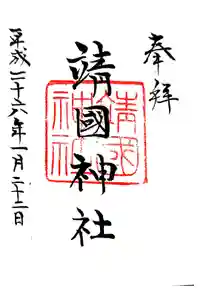 奉拝
靖國神社
靖國神社
平成二十六年一月二十二日